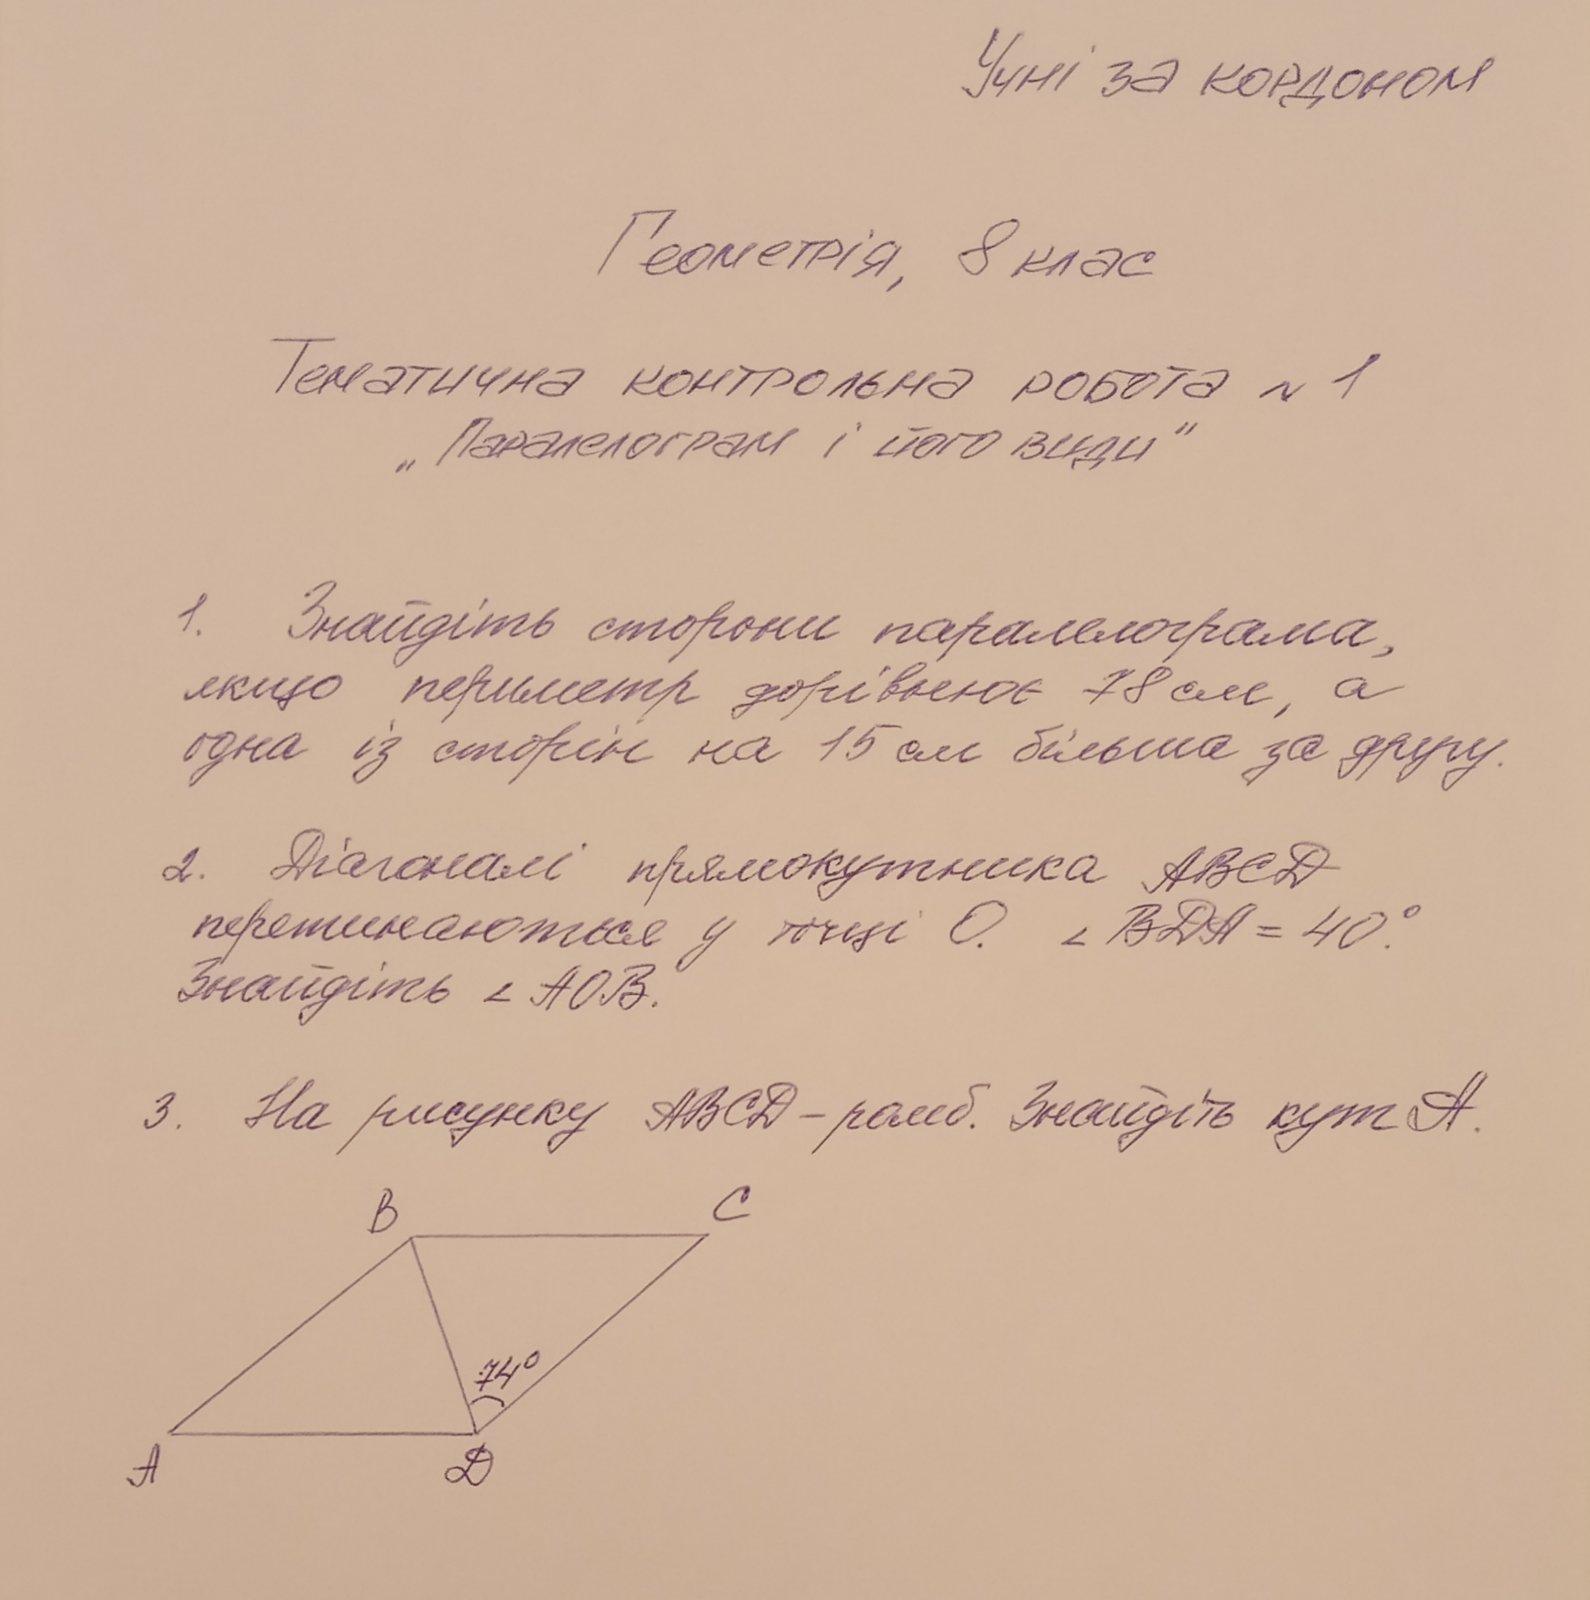 Учні за кордоном
Геометрія, 8 клас
Тематична контрольна робота № 1
„Паралелограм і його види”
1. Знайдіть сторони паралелограма,
якщо периметр дорівнює 78 см, а
одна із сторін на 15 см більша за другу.
2. Діагоналі прямокутника ABCD
перетинаються у точці О. ∠ BDA = 40°.
Знайдіть ∠ AOB.
3. На рисунку ABCD – ромб. Знайдіть кут А.
B C
74°
A D